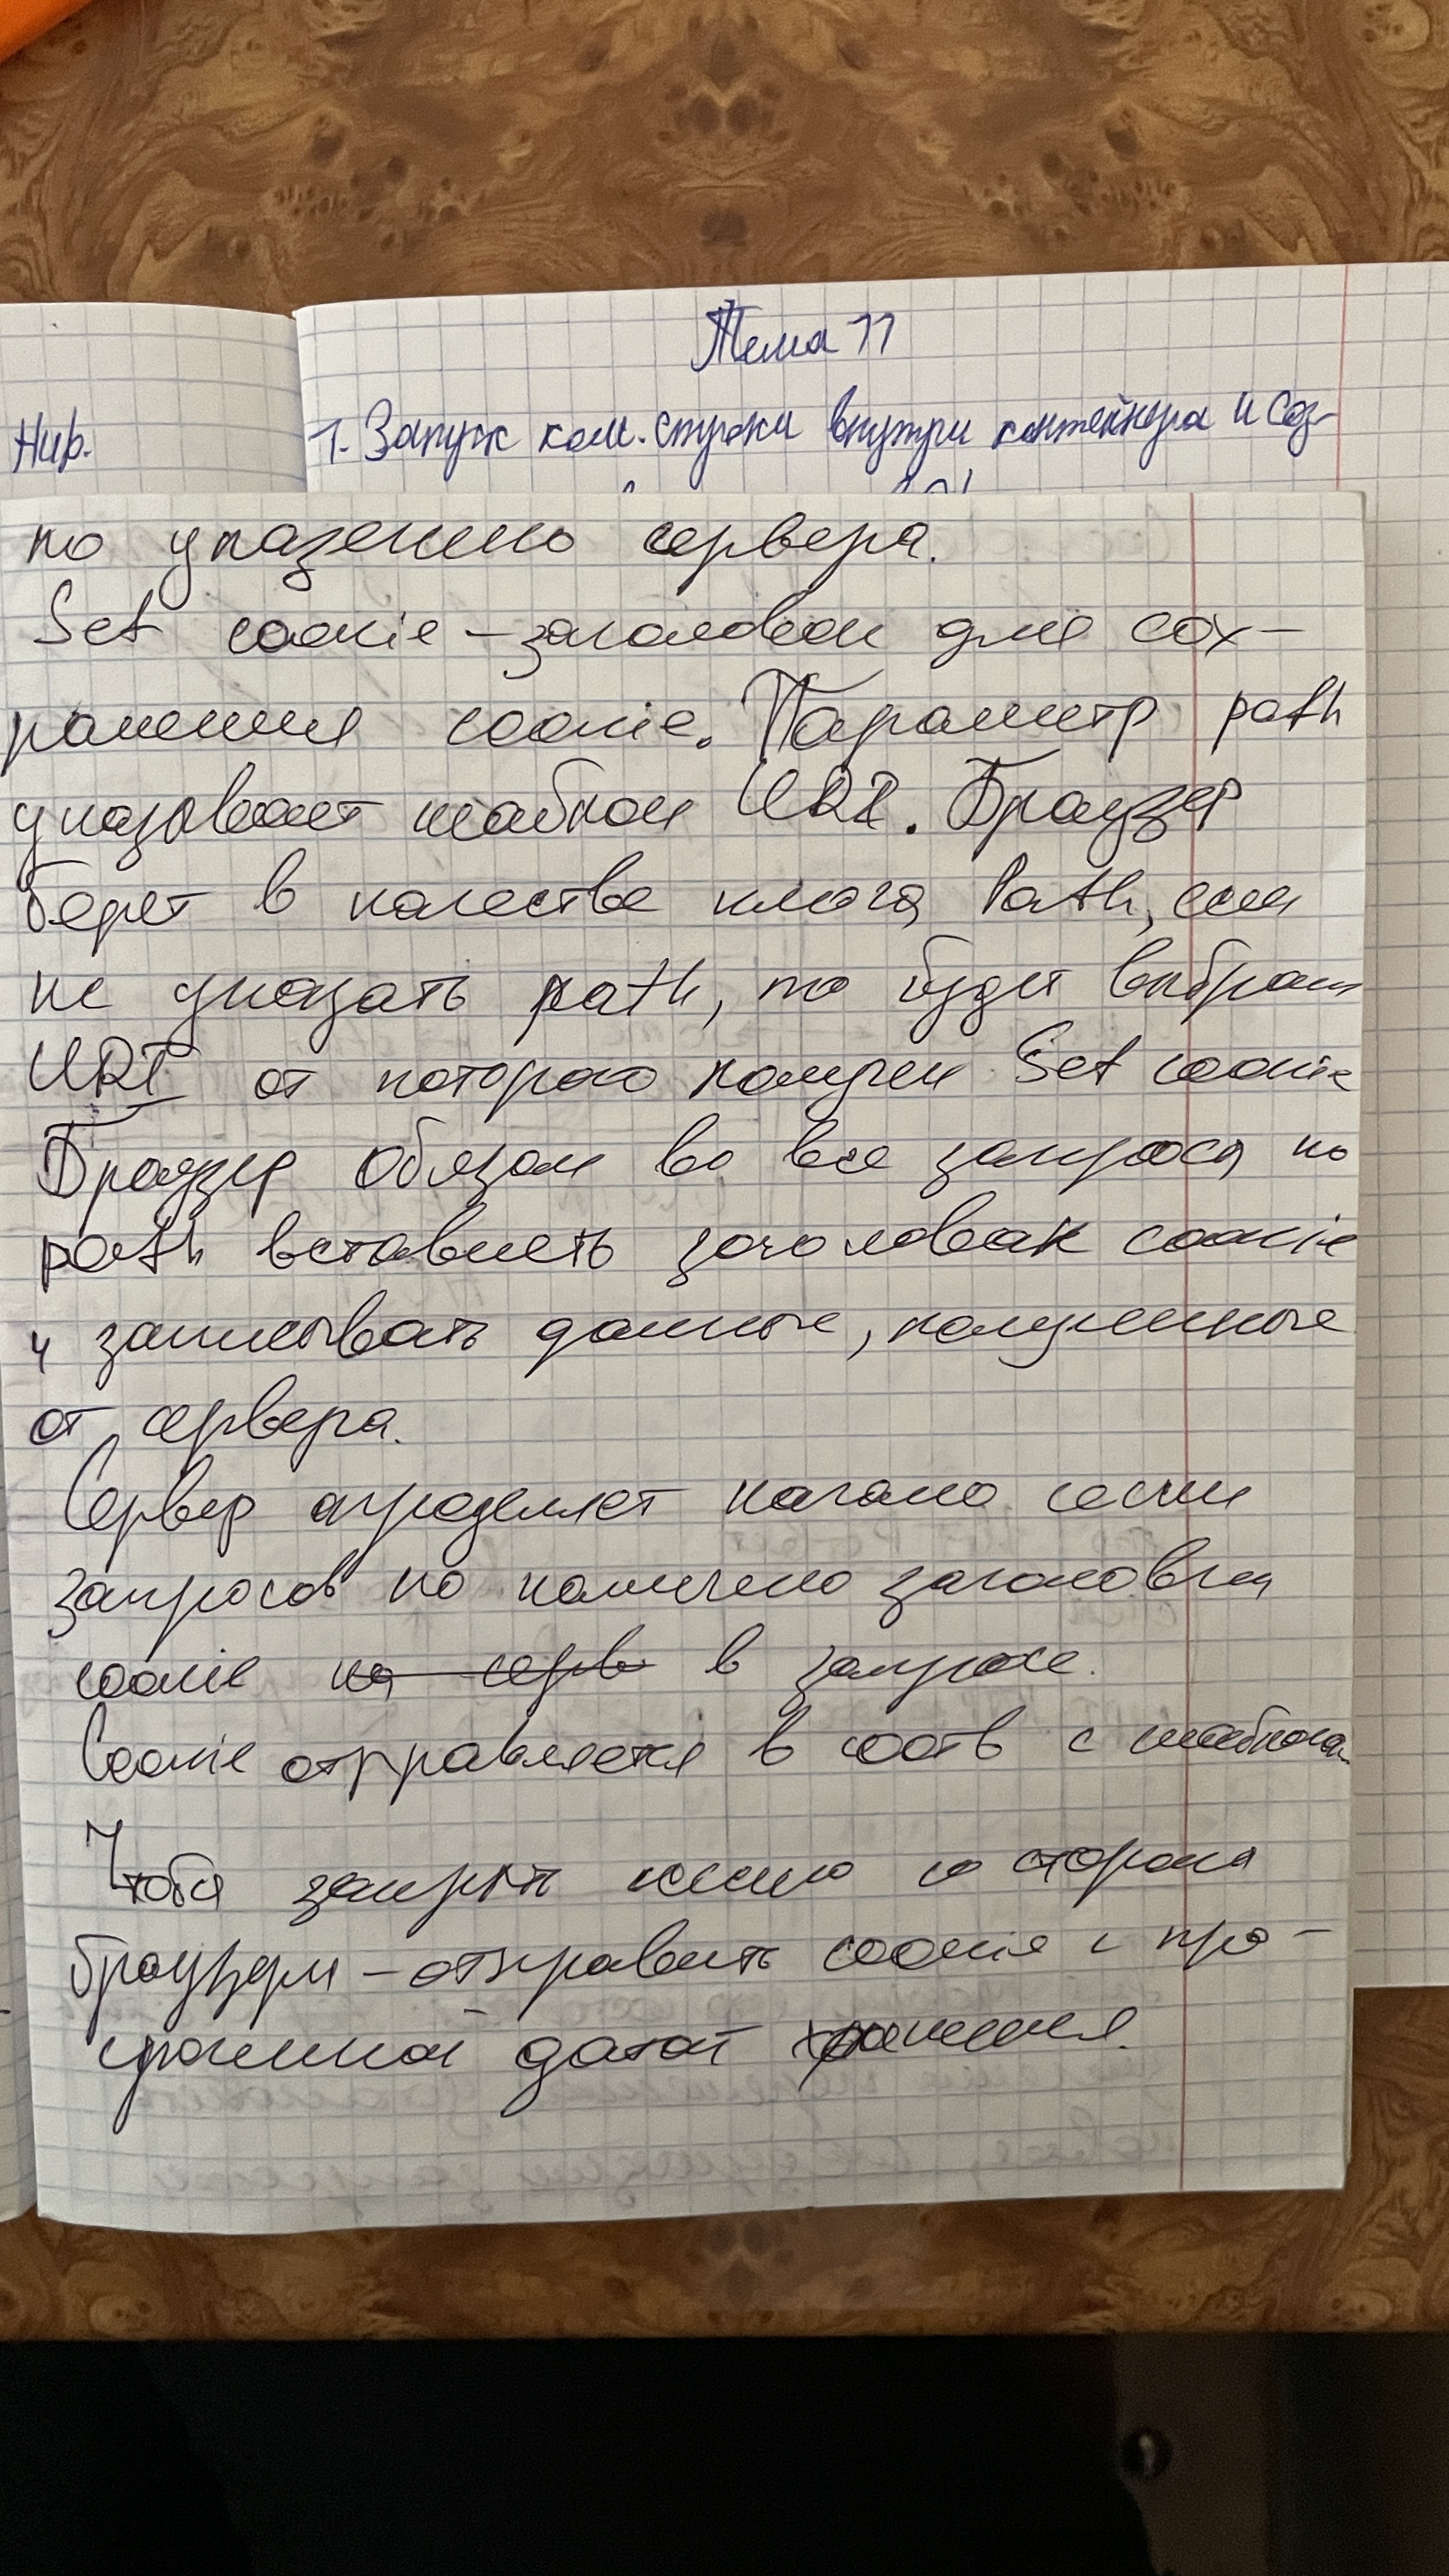 Тема 11
Hub.
1. Запуск ком. строки внутри контейнера и соз-
по указанию сервера.
Set cookie – заголовок для сох-
ранения cookie. Параметр path
указывает шаблон URI. Браузер
берет в качестве ключа Path, если
не указать path, то будет выбран
URI от которого получен Set cookie
Браузер обязан во все запросы по
path вставлять заголовок cookie
и записывать данные, полученные
от сервера.
Сервер определяет начало сессии
запросов по наличию заголовка
cookie на серв в запросе.
Cookie отправляется в соотв с шаблоном
Чтобы закрыть сессию со стороны
браузера – отправить cookie с про-
сроченной датой хранения.